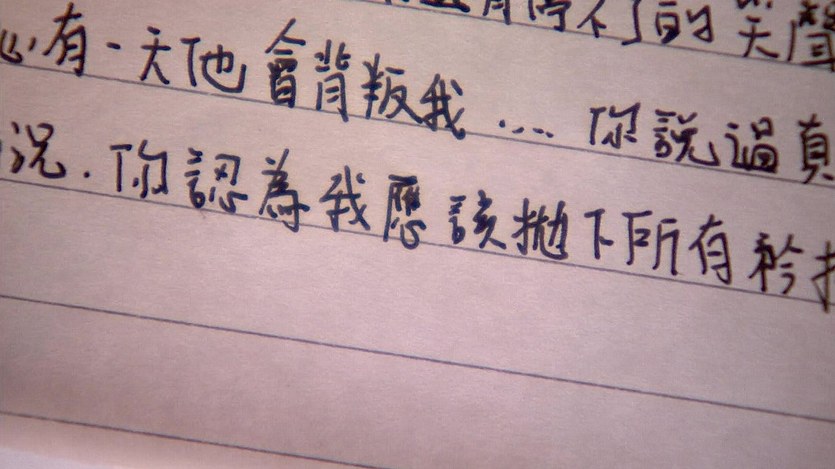 有停不了的笑聲
心有一天他會背叛我....你說過真
況.你認為我應該拋下所有矜持